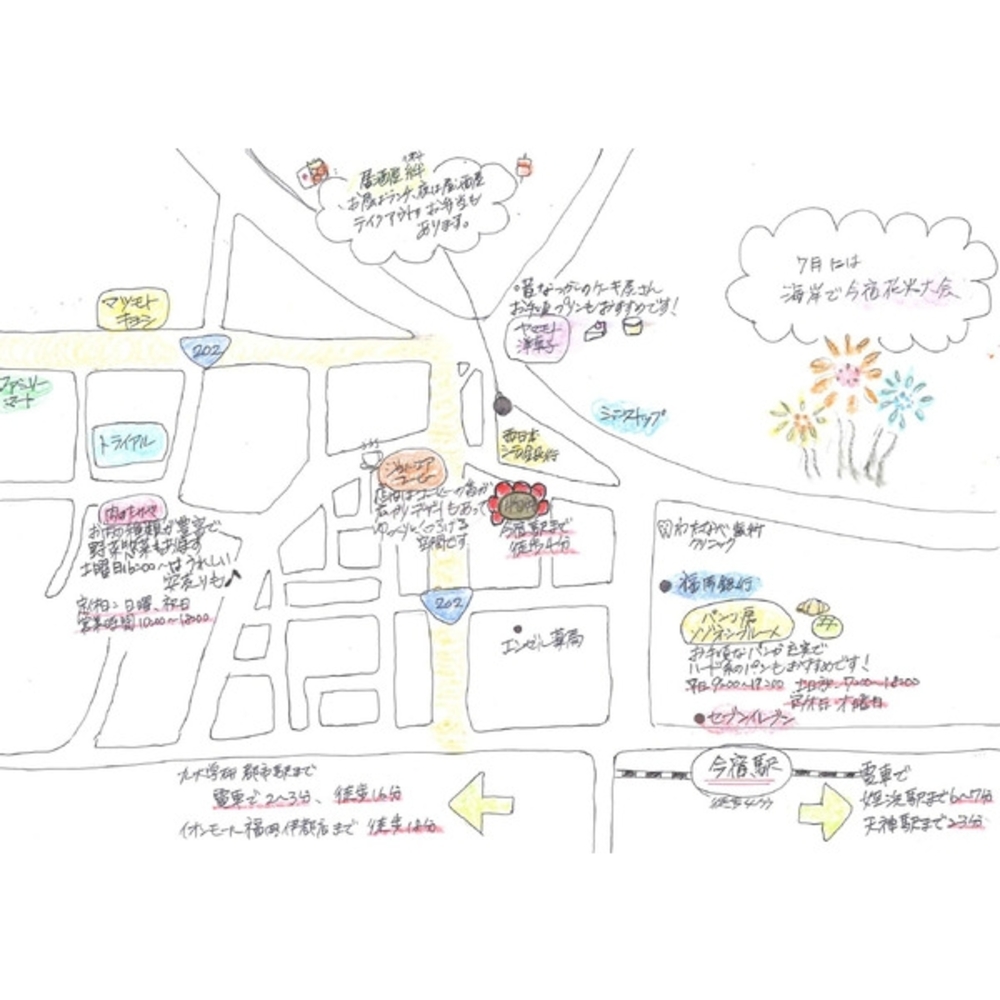 居酒屋 絆
お昼はランチ、夜は居酒屋
テイクアウト お弁当も
あります。
7月には
海岸で今宿花火大会
昔なつかしのケーキ屋さん
お手頃プリンもおすすめです!
ヤマモト
洋菓子
マツモト
キヨシ
202
ファミリー
マート
トライアル
ミニストップ
西日本
シティ銀行
コーヒー
店内はコーヒーの香が
ゆっくりくつろげる
空間です
今宿駅まで
徒歩4分
お肉の種類が豊富で
野菜惣菜もあります
土曜日16:00~はうれしい
安売りも♪
定休日:日曜、祝日
営業時間10:00~18:00
202
エンゼル薬局
わたなべ歯科
クリニック
福岡銀行
パン工房
ゾゾオンブルーメ
お手頃なパンが充実で
ハード系のパンもおすすめです!
平日9:00~19:00 土日祝:7:00~18:00
定休日:木曜日
セブンイレブン
今宿駅
徒歩4分
九大学研都市駅まで
電車で2~3分、徒歩16分
イオンモール福岡伊都店まで 徒歩18分
電車で
姪浜駅まで6~7分
天神駅まで23分